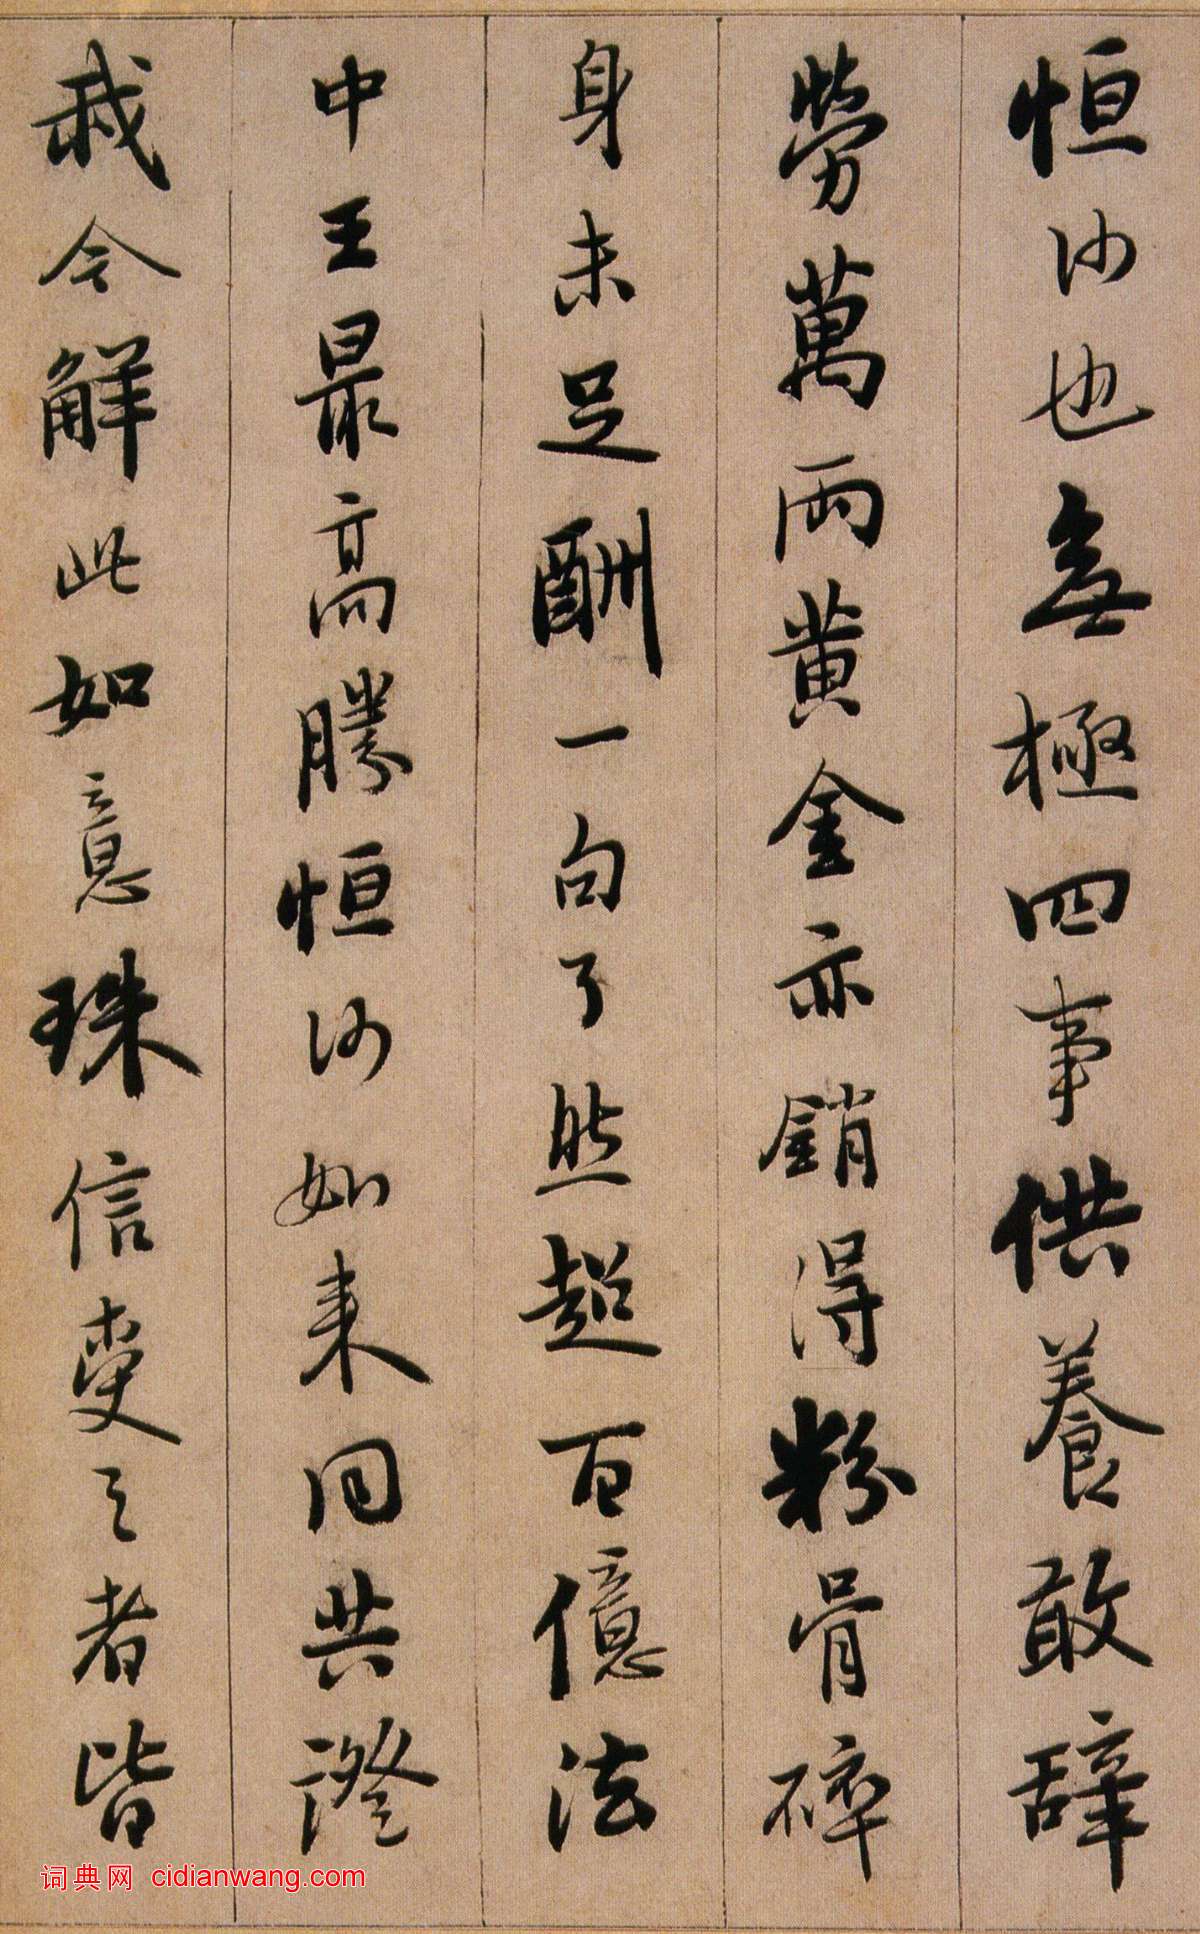 恒沙也無極四事供養敢辭
勞萬兩黃金亦銷得粉骨碎
身未足酬一句了然超百億法
中王最高勝恒沙如來同共證
我今解此如意珠信受之者皆
词典网 cidianwang.com